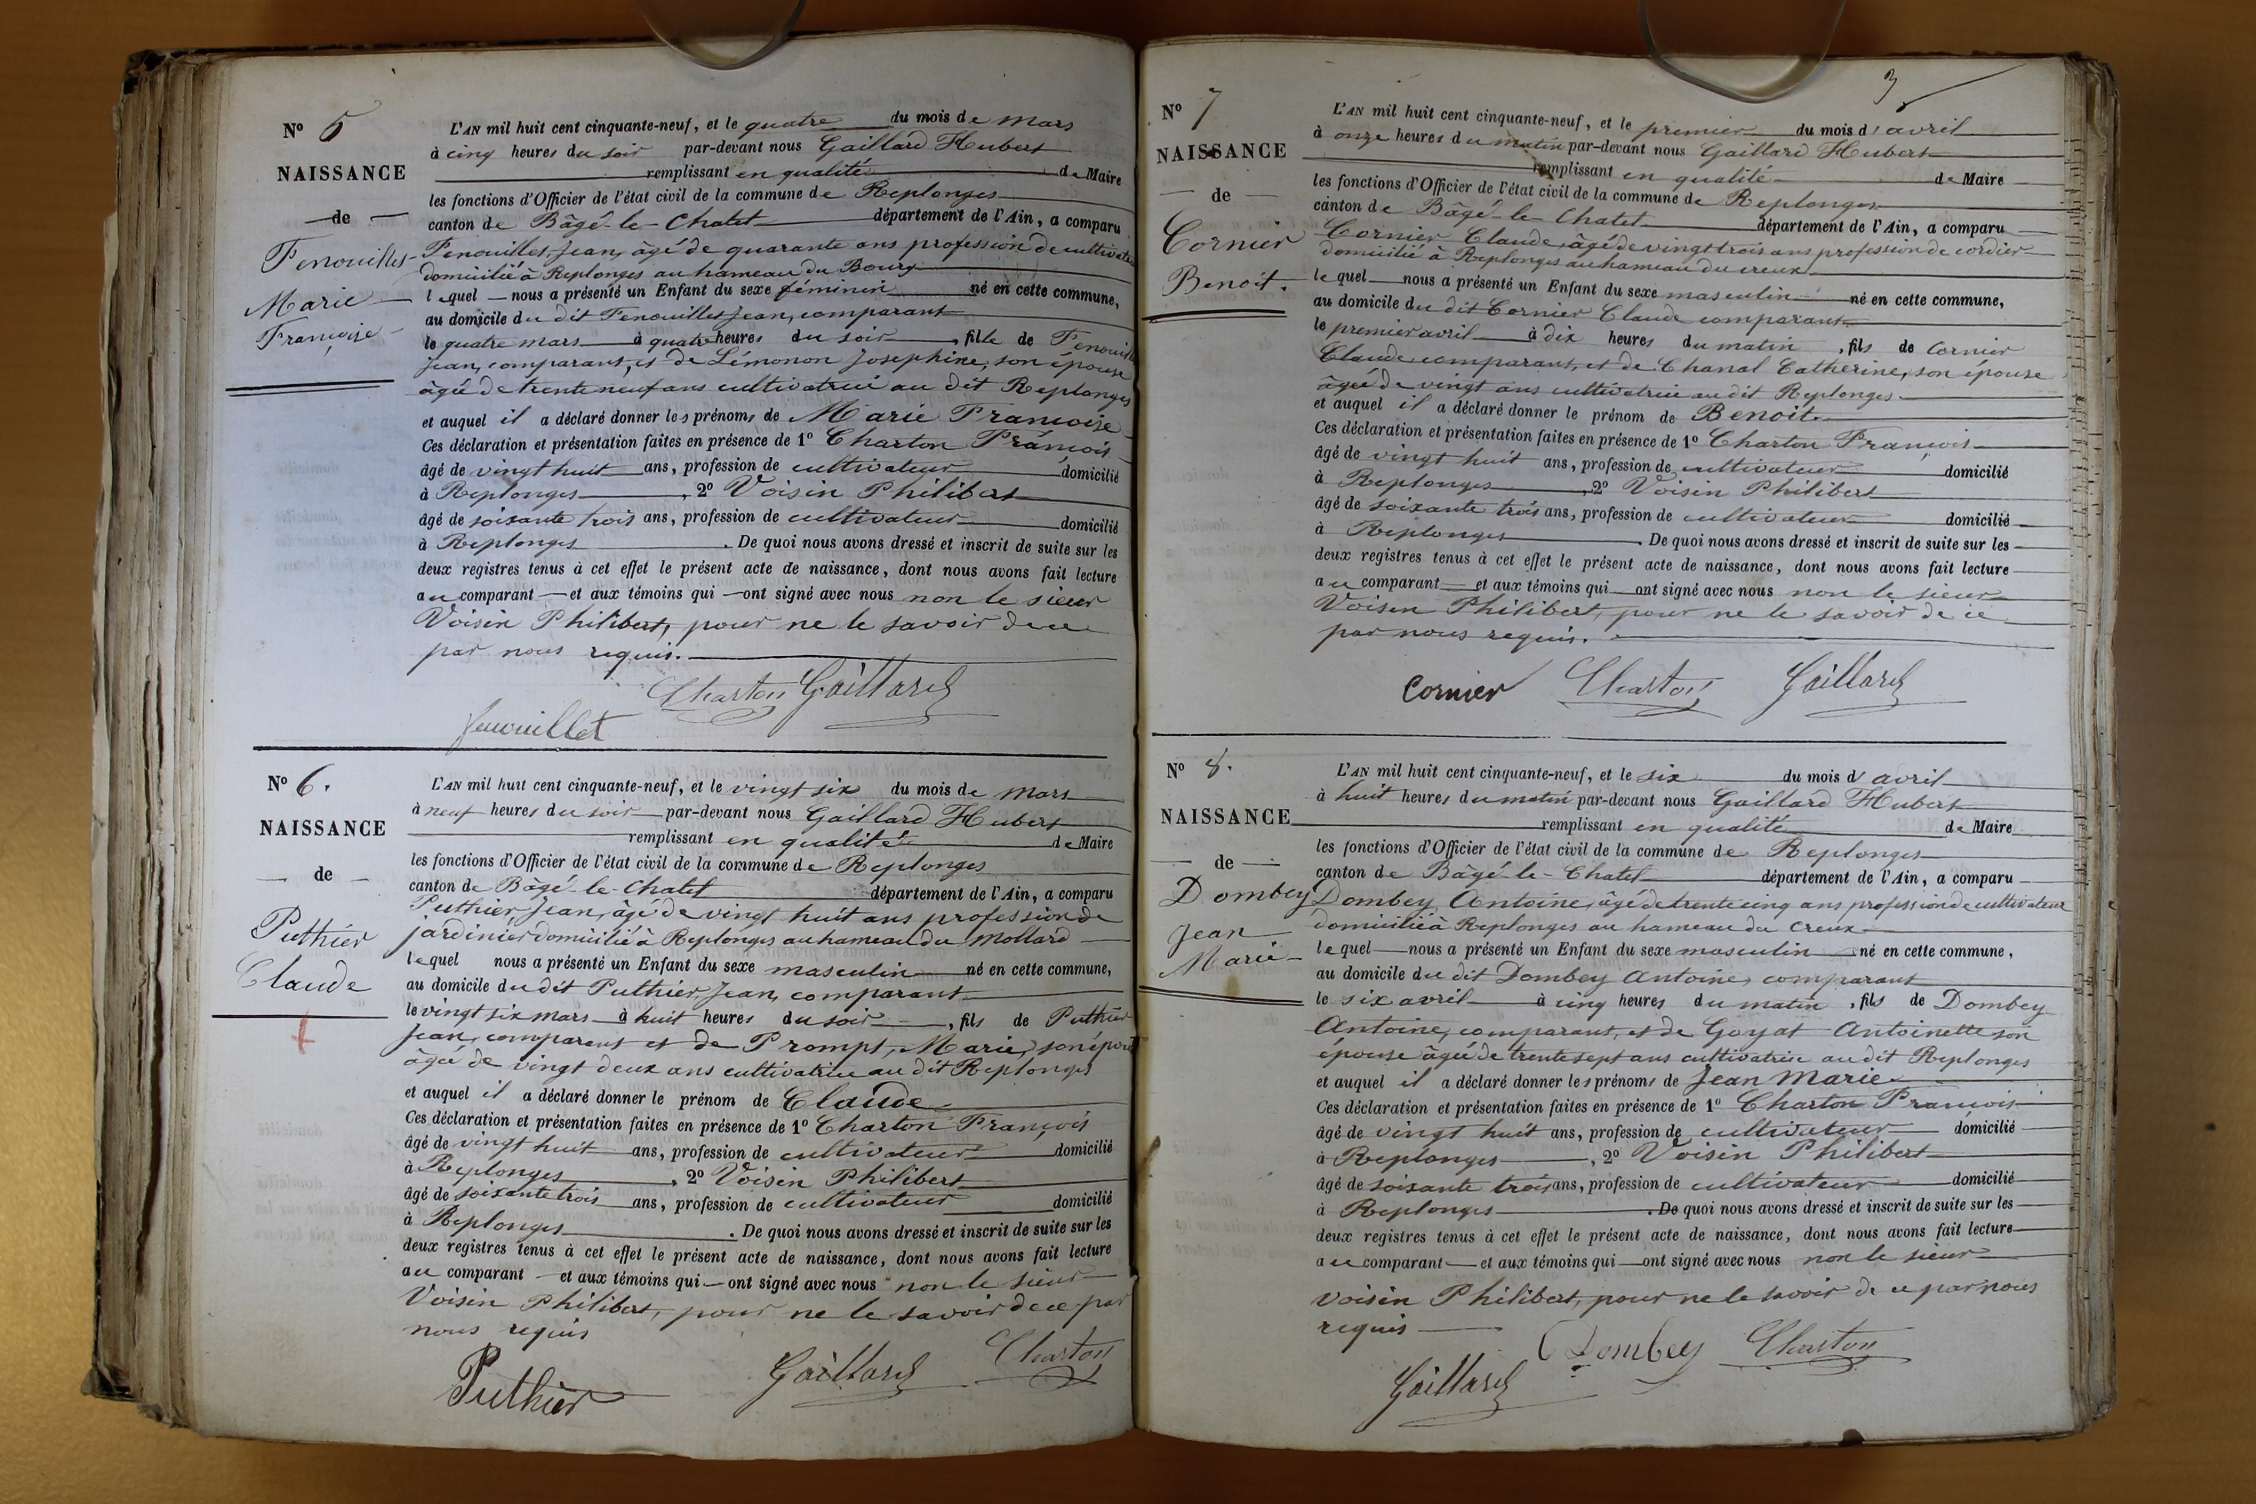 N° 5
NAISSANCE
de
Fenouillet
Marie
Françoise
L'AN mil huit cent cinquante-neuf, et le quatre du mois de mars
à cinq heures du soir par-devant nous Gaillard Hubert
remplissant en qualité de Maire
les fonctions d'Officier de l'état civil de la commune de Replonges
canton de Bâgé-le-Chatel département de l'Ain, a comparu
Fenouillet Jean, âgé de quarante ans profession de cultivateur
domicilié à Replonges au hameau du Bourg
lequel nous a présenté un Enfant du sexe féminin né en cette commune,
au domicile du dit Fenouillet Jean, comparant
le quatre mars à quatre heures du soir, fille de Fenouillet
Jean, comparant, et de Lémonon Josephine, son épouse
âgée de trente neuf ans cultivatrice au dit Replonges
et auquel il a déclaré donner les prénoms de Marie Françoise
Ces déclaration et présentation faites en présence de 1° Charton François
âgé de vingt huit ans, profession de cultivateur domicilié
à Replonges, 2° Voisin Philibert
âgé de soixante trois ans, profession de cultivateur domicilié
à Replonges. De quoi nous avons dressé et inscrit de suite sur les
deux registres tenus à cet effet le présent acte de naissance, dont nous avons fait lecture
au comparant et aux témoins qui ont signé avec nous non le sieur
Voisin Philibert, pour ne le savoir de ce
par nous requis.
Charton Gaillard
Fenouillet
N° 6.
NAISSANCE
de
Puthier
Claude
L'AN mil huit cent cinquante-neuf, et le vingt six du mois de mars
à neuf heures du soir par-devant nous Gaillard Hubert
remplissant en qualité de Maire
les fonctions d'Officier de l'état civil de la commune de Replonges
canton de Bâgé-le-Chatel département de l'Ain, a comparu
Puthier, Jean, âgé de vingt huit ans profession de
jardinier domicilié à Replonges au hameau du Mollard
lequel nous a présenté un Enfant du sexe masculin né en cette commune,
au domicile du dit Puthier, Jean, comparant
le vingt six mars à huit heures du soir, fils de Puthier
Jean, comparant et de Prompt, Marie, son épouse
âgée de vingt deux ans cultivatrice au dit Replonges
et auquel il a déclaré donner le prénom de Claude
Ces déclaration et présentation faites en présence de 1° Charton François
âgé de vingt huit ans, profession de cultivateur domicilié
à Replonges, 2° Voisin Philibert
âgé de soixante trois ans, profession de cultivateur domicilié
à Replonges. De quoi nous avons dressé et inscrit de suite sur les
deux registres tenus à cet effet le présent acte de naissance, dont nous avons fait lecture
au comparant et aux témoins qui ont signé avec nous non le sieur
Voisin Philibert, pour ne le savoir de ce par
nous requis
Puthier Gaillard Charton
3
N° 7
NAISSANCE
de
Cornier
Benoit.
L'AN mil huit cent cinquante-neuf, et le premier du mois d'avril
à onze heures du matin par-devant nous Gaillard Hubert
remplissant en qualité de Maire
les fonctions d'Officier de l'état civil de la commune de Replonges
canton de Bâgé-le-Chatel département de l'Ain, a comparu
Cornier Claude, âgé de vingt trois ans profession de cordier
domicilié à Replonges au hameau du creux
lequel nous a présenté un Enfant du sexe masculin né en cette commune,
au domicile du dit Cornier Claude comparant
le premier avril à dix heures du matin, fils de Cornier
Claude comparant, et de Chanal Catherine, son épouse
âgée de vingt ans cultivatrice au dit Replonges
et auquel il a déclaré donner le prénom de Benoit
Ces déclaration et présentation faites en présence de 1° Charton François
âgé de vingt huit ans, profession de cultivateur domicilié
à Replonges, 2° Voisin Philibert
âgé de soixante trois ans, profession de cultivateur domicilié
à Replonges. De quoi nous avons dressé et inscrit de suite sur les
deux registres tenus à cet effet le présent acte de naissance, dont nous avons fait lecture
au comparant et aux témoins qui ont signé avec nous non le sieur
Voisin Philibert, pour ne le savoir de ce
par nous requis.
Cornier Charton Gaillard
N° 8.
NAISSANCE
de
Dombey
Jean
Marie
L'AN mil huit cent cinquante-neuf, et le six du mois d'avril
à huit heures du matin par-devant nous Gaillard Hubert
remplissant en qualité de Maire
les fonctions d'Officier de l'état civil de la commune de Replonges
canton de Bâgé-le-Chatel département de l'Ain, a comparu
Dombey, Antoine, âgé de trente cinq ans profession de cultivateur
domicilié à Replonges au hameau du creux
lequel nous a présenté un Enfant du sexe masculin né en cette commune,
au domicile du dit Dombey Antoine, comparant
le six avril à cinq heures du matin, fils de Dombey
Antoine, comparant, et de Goyat Antoinette son
épouse âgée de trente sept ans cultivatrice au dit Replonges
et auquel il a déclaré donner les prénoms de Jean Marie
Ces déclaration et présentation faites en présence de 1° Charton François
âgé de vingt huit ans, profession de cultivateur domicilié
à Replonges, 2° Voisin Philibert
âgé de soixante trois ans, profession de cultivateur domicilié
à Replonges. De quoi nous avons dressé et inscrit de suite sur les
deux registres tenus à cet effet le présent acte de naissance, dont nous avons fait lecture
au comparant et aux témoins qui ont signé avec nous non le sieur
Voisin Philibert, pour ne le savoir de ce par nous
requis
Dombey Charton
Gaillard